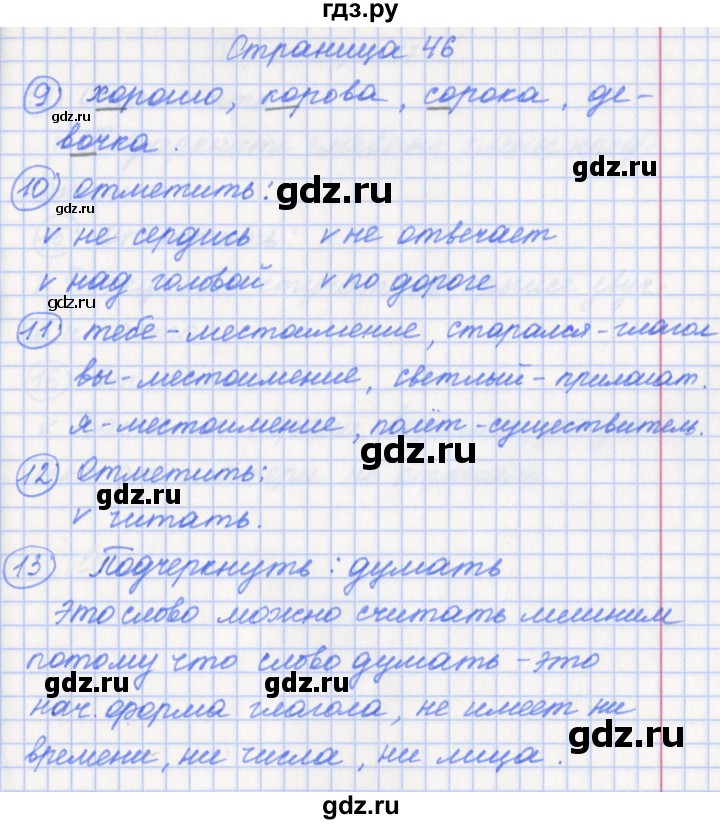 гдз.ру
Страница 46
9) хорошо, корова, сорока, де-
вочка.
gdz.ru
10) отметить: gdz.ru
gdz.ru
v не сердись v не отвечает
v над головой v по дороге
gdz.ru
11) тебе - местоимение, старался - глагол
вы - местоимение, светлый - прилагат.
я - местоимение, полёт - существитель.
gdz.ru
12) Отметить:
gdz.ru
v читать.
13) Подчеркнуть: думать
Это слово можно считать лишним
потому что слово думать - это
gdz.ru gdz.ru
нач. форма глагола, не имеет ни
gdz.ru
времени, ни числа, ни лица.
gdz.ru